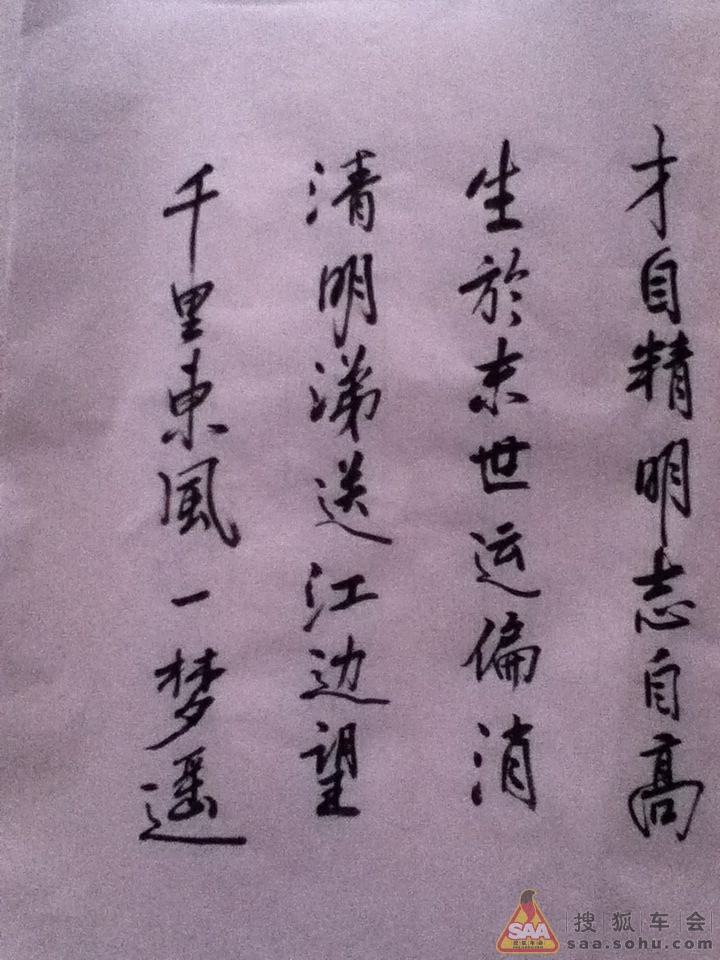 才自精明志自高
生於末世运偏消
清明涕送江边望
千里東風一梦遥
SAA
搜狐车会
saa.sohu.com